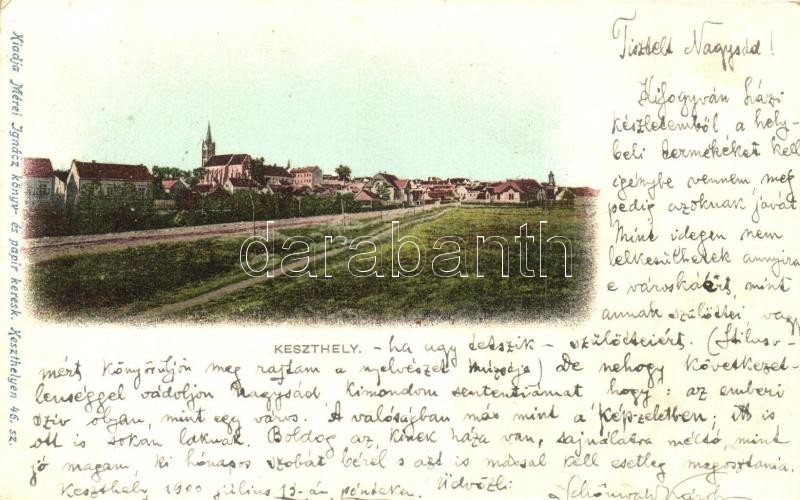 Tisztelt Nagysád!
Kifogyván házi
készletemből a hely-
beli termékeket kell
igénybe vennem még
pedig azoknak javát
Mint idegen nem
lelkesülhetek annyira
e városkáért, mint
annak szülöttei vagy
KESZTHELY. - ha ugy tetszik - szülötteiért. (Stilus-
mért könyörüljön meg rajtam a nyelvészet muzsája) De nehogy következet-
lenséggel vádoljon Nagysád kimondom sententiámat hogy: az emberi
sziv olyan, mint egy város. A valóságban más mint a képzeletben; itt is
ott is sokan laknak. Boldog az, kinek háza van, sajnálatra méltó, mint
jó magam, ki hónapos szobát bérel s azt is mással kell esetleg megosztania.
Keszthely 1900 július 13-án, pénteken. Üdvözli:
Kiadja Mérei Ignácz könyv- és papir keresk. Keszthelyen 46. sz.
darabanth